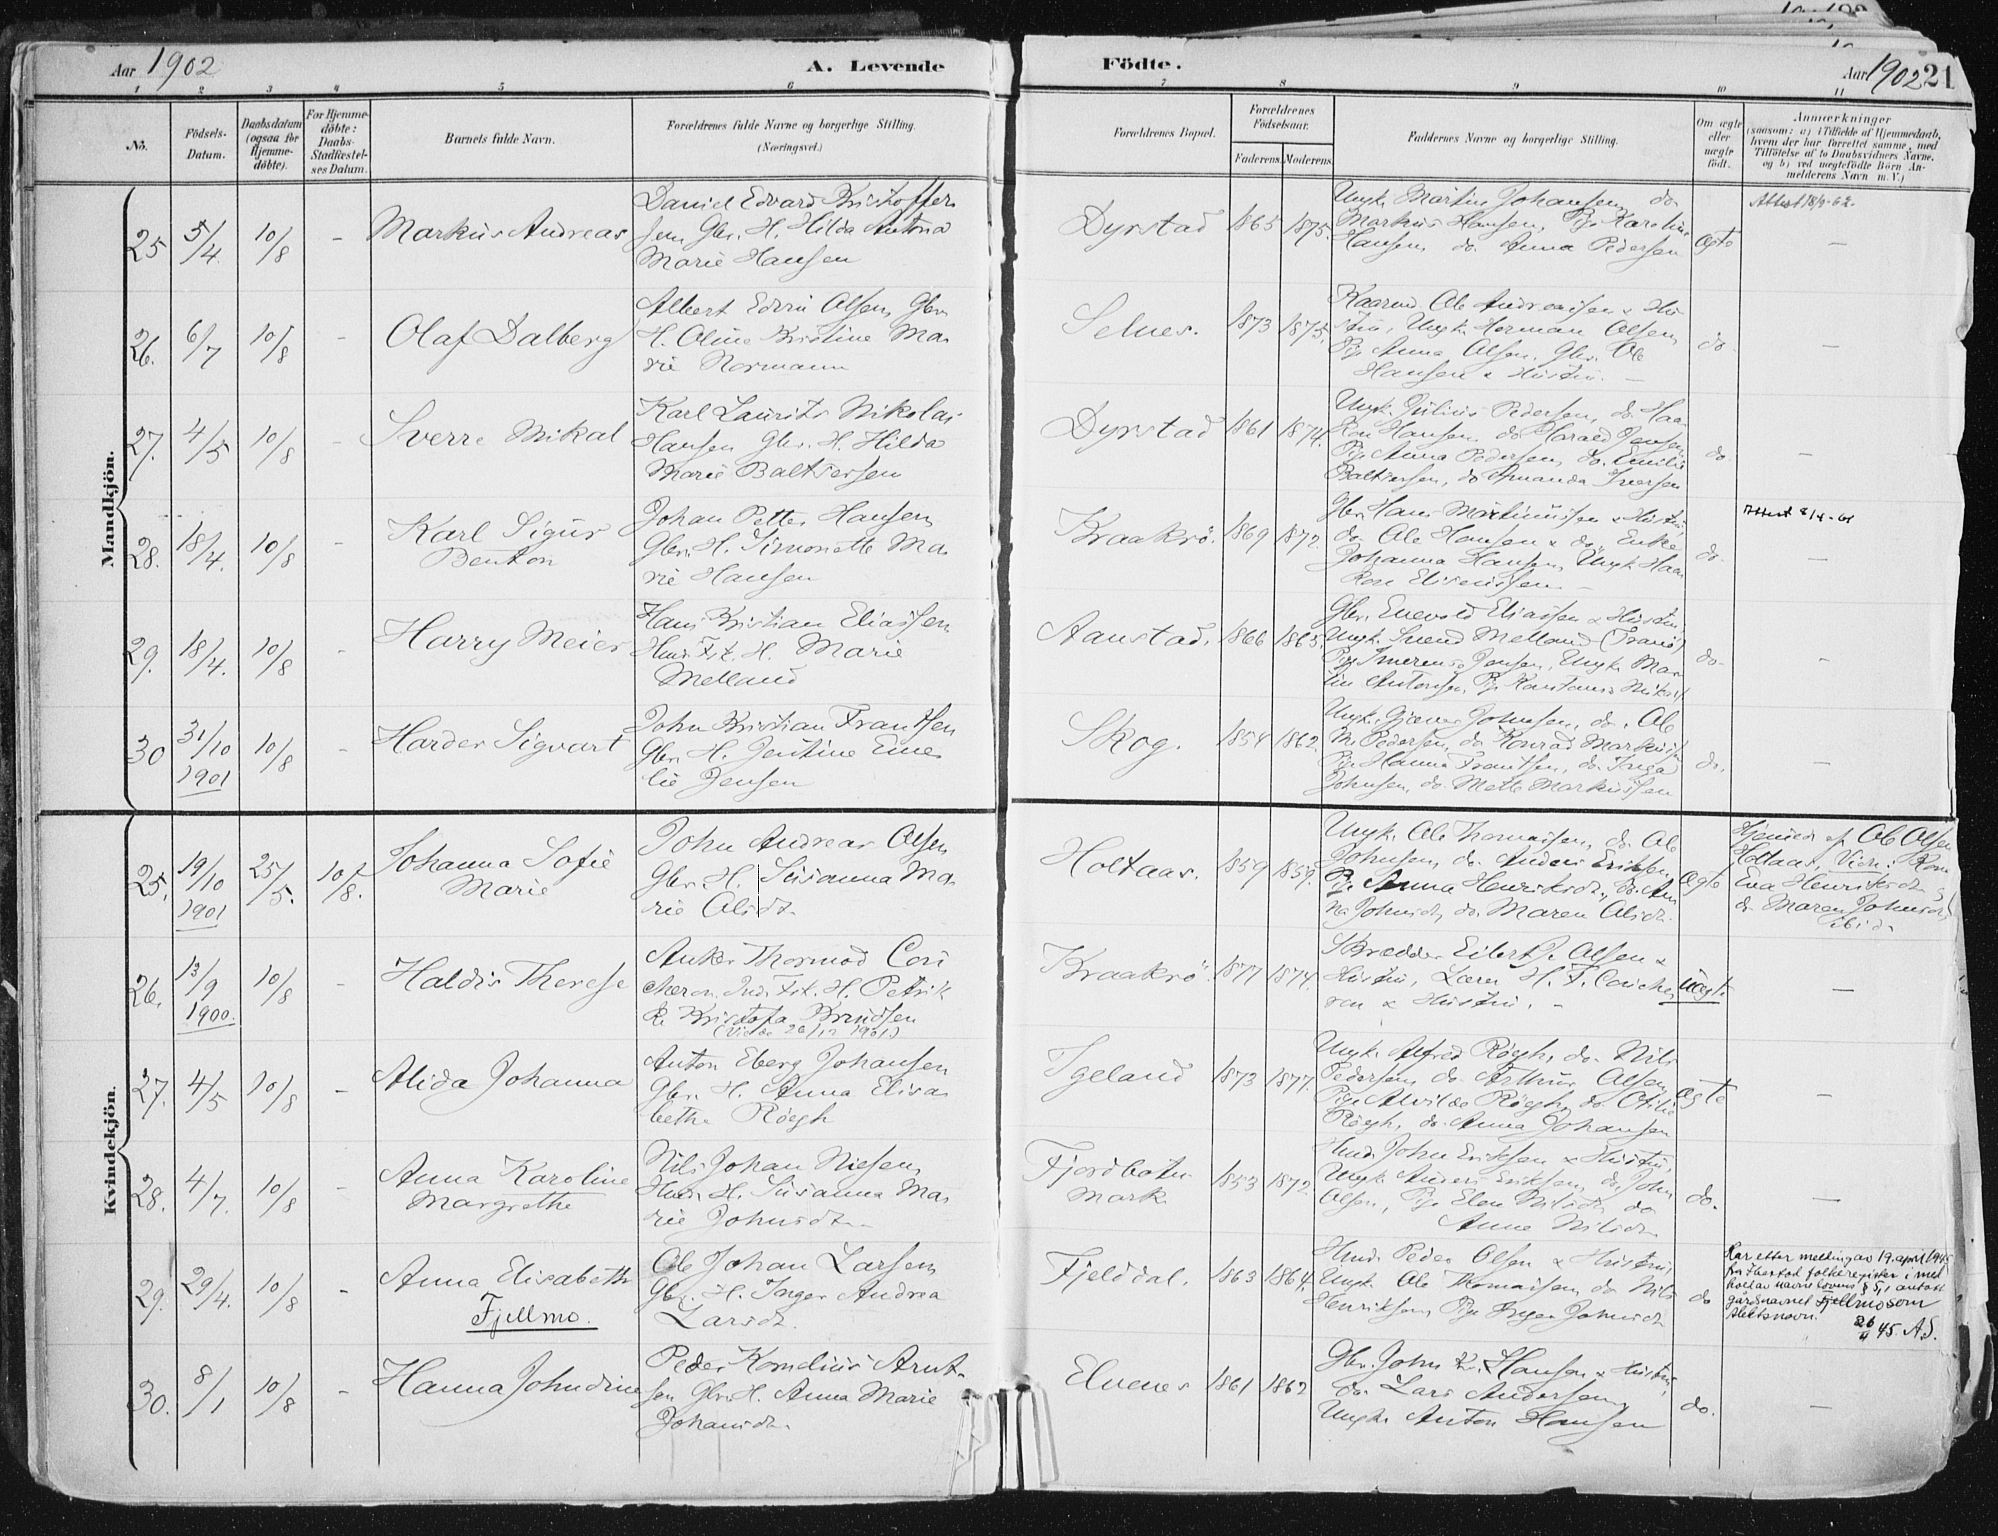 Aar 1902
A. Levende
Födte.
Aar 1902 21
1 2 3 4 5 6 7 8 9 10 11
No.
Födsels-
Datum.
Daabsdatum
(ogsaa for
Hjemme-
döbte).
For Hjemme-
döbte:
Daabs-
Stadfæstel-
ses Datum.
Barnets fulde Navn.
Forældrenes fulde Navne og borgerlige Stilling.
(Næringsvei.)
Forældrenes Bopæl.
Forældrenes
Födselsaar.
Faderens. Moderens.
Faddernes Navne og borgerlige Stilling.
Om ægte
eller
uægte
födt.
Anmærkninger
(saasom: a) i Tilfælde af Hjemmedaab,
hvem der har forrettet samme, med
Tilföielse af to Daabsvidners Navne,
og b) ved uægtefödte Börn An-
melderens Navn m. V.)
Mandkjön.
25 5/4 10/8 - Markus Andreas
Daniel Edvard Kristoffer
sen Gbr. H. Hilda Antona
Marie Hansen
Dyrstad 1865 1875.
Ungk. Martin Johansen, do
Markus Hansen, Pige Karoline
Hansen, do Anna Pedersen
Ægte
26. 6/7 10/8 - Olaf Dalberg
Albert Edvin Olsen, Gbr.
H. Oline Kristine Ma-
rie Normann
Selnes. 1873 1875.
Kaarmd. Ole Andreassen & Hu-
stru, Ungk. Herman Olsen,
Pige Anna Olsen. Gbr. Ole
Hansen & Hustru. -
do -
27. 4/5 10/8 - Sverre Mikal
Karl Laurits Nikolai
Hansen Gbr. H. Hilda
Marie Baltsersen
Dyrstad 1861 1874.
Ungk. Julius Pedersen, do. Haa-
kon Hansen, do Harald Jensen,
Pige Anna Pedersen, do. Emilie
Baltsersen, do Amanda Iversen
do -
28. 18/4. 10/8 - Karl Sigur
Benton
Johan Petter Hansen,
Gbr. H. Simonette Ma-
rie Hansen
Kraakrö. 1869 1872.
Gbr. Hans Martinussen & Hustru,
do Ole Hansen & do, Enke
Johanna Hansen, Ungk. Haa-
kon
do.
29. 18/4. 10/8 - Harry Meier
Hans Kristian Eliassen
H. Marie
Melland
Aanstad. 1866 1865.
Gbr. Enevold Eliassen & Hustru,
Ungk. Svend Melland (Tranö)
Jensen, Ungk. Mar-
tin Antonsen, Pige
do -
30 31/10 1901 10/8 - Harder Sigvart
John Kristian Frantsen
Gbr. H. Jentine Eme-
lie Jensen
Skog. 1854 1862.
Ungk. Johnsen, do. Ole
Pedersen, do Konrad Markussen
Pige Hanna Frantsen, do. Inga
Johnsen, do. Mette Markussen
do. -
Kvindekjön.
25. 19/10 1901 25/5. 10/8. Johanna Sofie
Marie
John Andreas Olsen
Gbr. H. Susanna Ma-
rie Olsdt.
Holtaas. 1859 1859.
Ungk. Ole Thomassen, do. Ole
Johnsen, do. Anders Eriksen,
Pige Anna Henriksdt., do. An-
na Johnsdt, do. Maren Olsdt.
Ægte
Hjemmed. af Ole Olsen
Holtaas, Vidn. Kone
Eva Henriksdt &
do Maren Johnsdt,
ibid.
26. 13/9 1900. 10/8 - Haldis Therese
Anker Thormod Cori
cheron, Ind. Fsk. H. Petrik
ke Kristofa Berntsen
(Viede 26/12 1901)
Kraakrö 1877 1874.
Skrædder Eilert J. Olsen &
Hustru, Lærer H. F. Coriche
ron & Hustru. -
uægte -
27. 4/5 10/8 - Alida Johanna
Anton Eberg Johansen
Gbr. H. Anna Elisa-
bethe Röegh
Igeland 1873 1877.
Ungk. Alfred Röegh, do. Nils
Pedersen, do. Arthur Olsen,
Pige Alvilde Röegh, do. Otilie
Röegh, do. Anna Johansen
Ægte -
28. 4/7. 10/8 - Anna Karoline
Margrethe
Nils Johan Nilsen,
H. Susanna Ma-
rie Johnsdt.
Fjordbotn-
mark 1853 1872.
John Eriksen & Hustru,
Ungk. Anders Eriksen, do. John
Olsen, Pige Elen Nilsdt, do
Anne Nilsdt.
do. -
29. 29/4. 10/8 - Anna Elisabeth
Fjellmo.
Ole Johan Larsen,
Gbr. H. Inger Andrea
Larsdt.
Fjelddal. 1863 1864.
Peder Olsen & Hustru,
Ungk. Ole Thomassen, do Nils
Henriksen, Pige Inger Johnsdt
do
Har etter melding av 19. april 1945
fra Ibestad folkeregister i med
hold av navnelovens § 5, antatt
gårdnavnet Fjellmo som
slektsnavn. 26/4 45. A.S.
30. 8/1 10/8 - Hanna Johndine
Peder Kornelius Arnt-
sen Gbr. H. Anna Marie
Johansdt.
Elvenes 1861 1862
Gbr. John Kr. Hansen & Hustru,
do. Lars Andersen,
Ungk. Anton Hansen
do. -